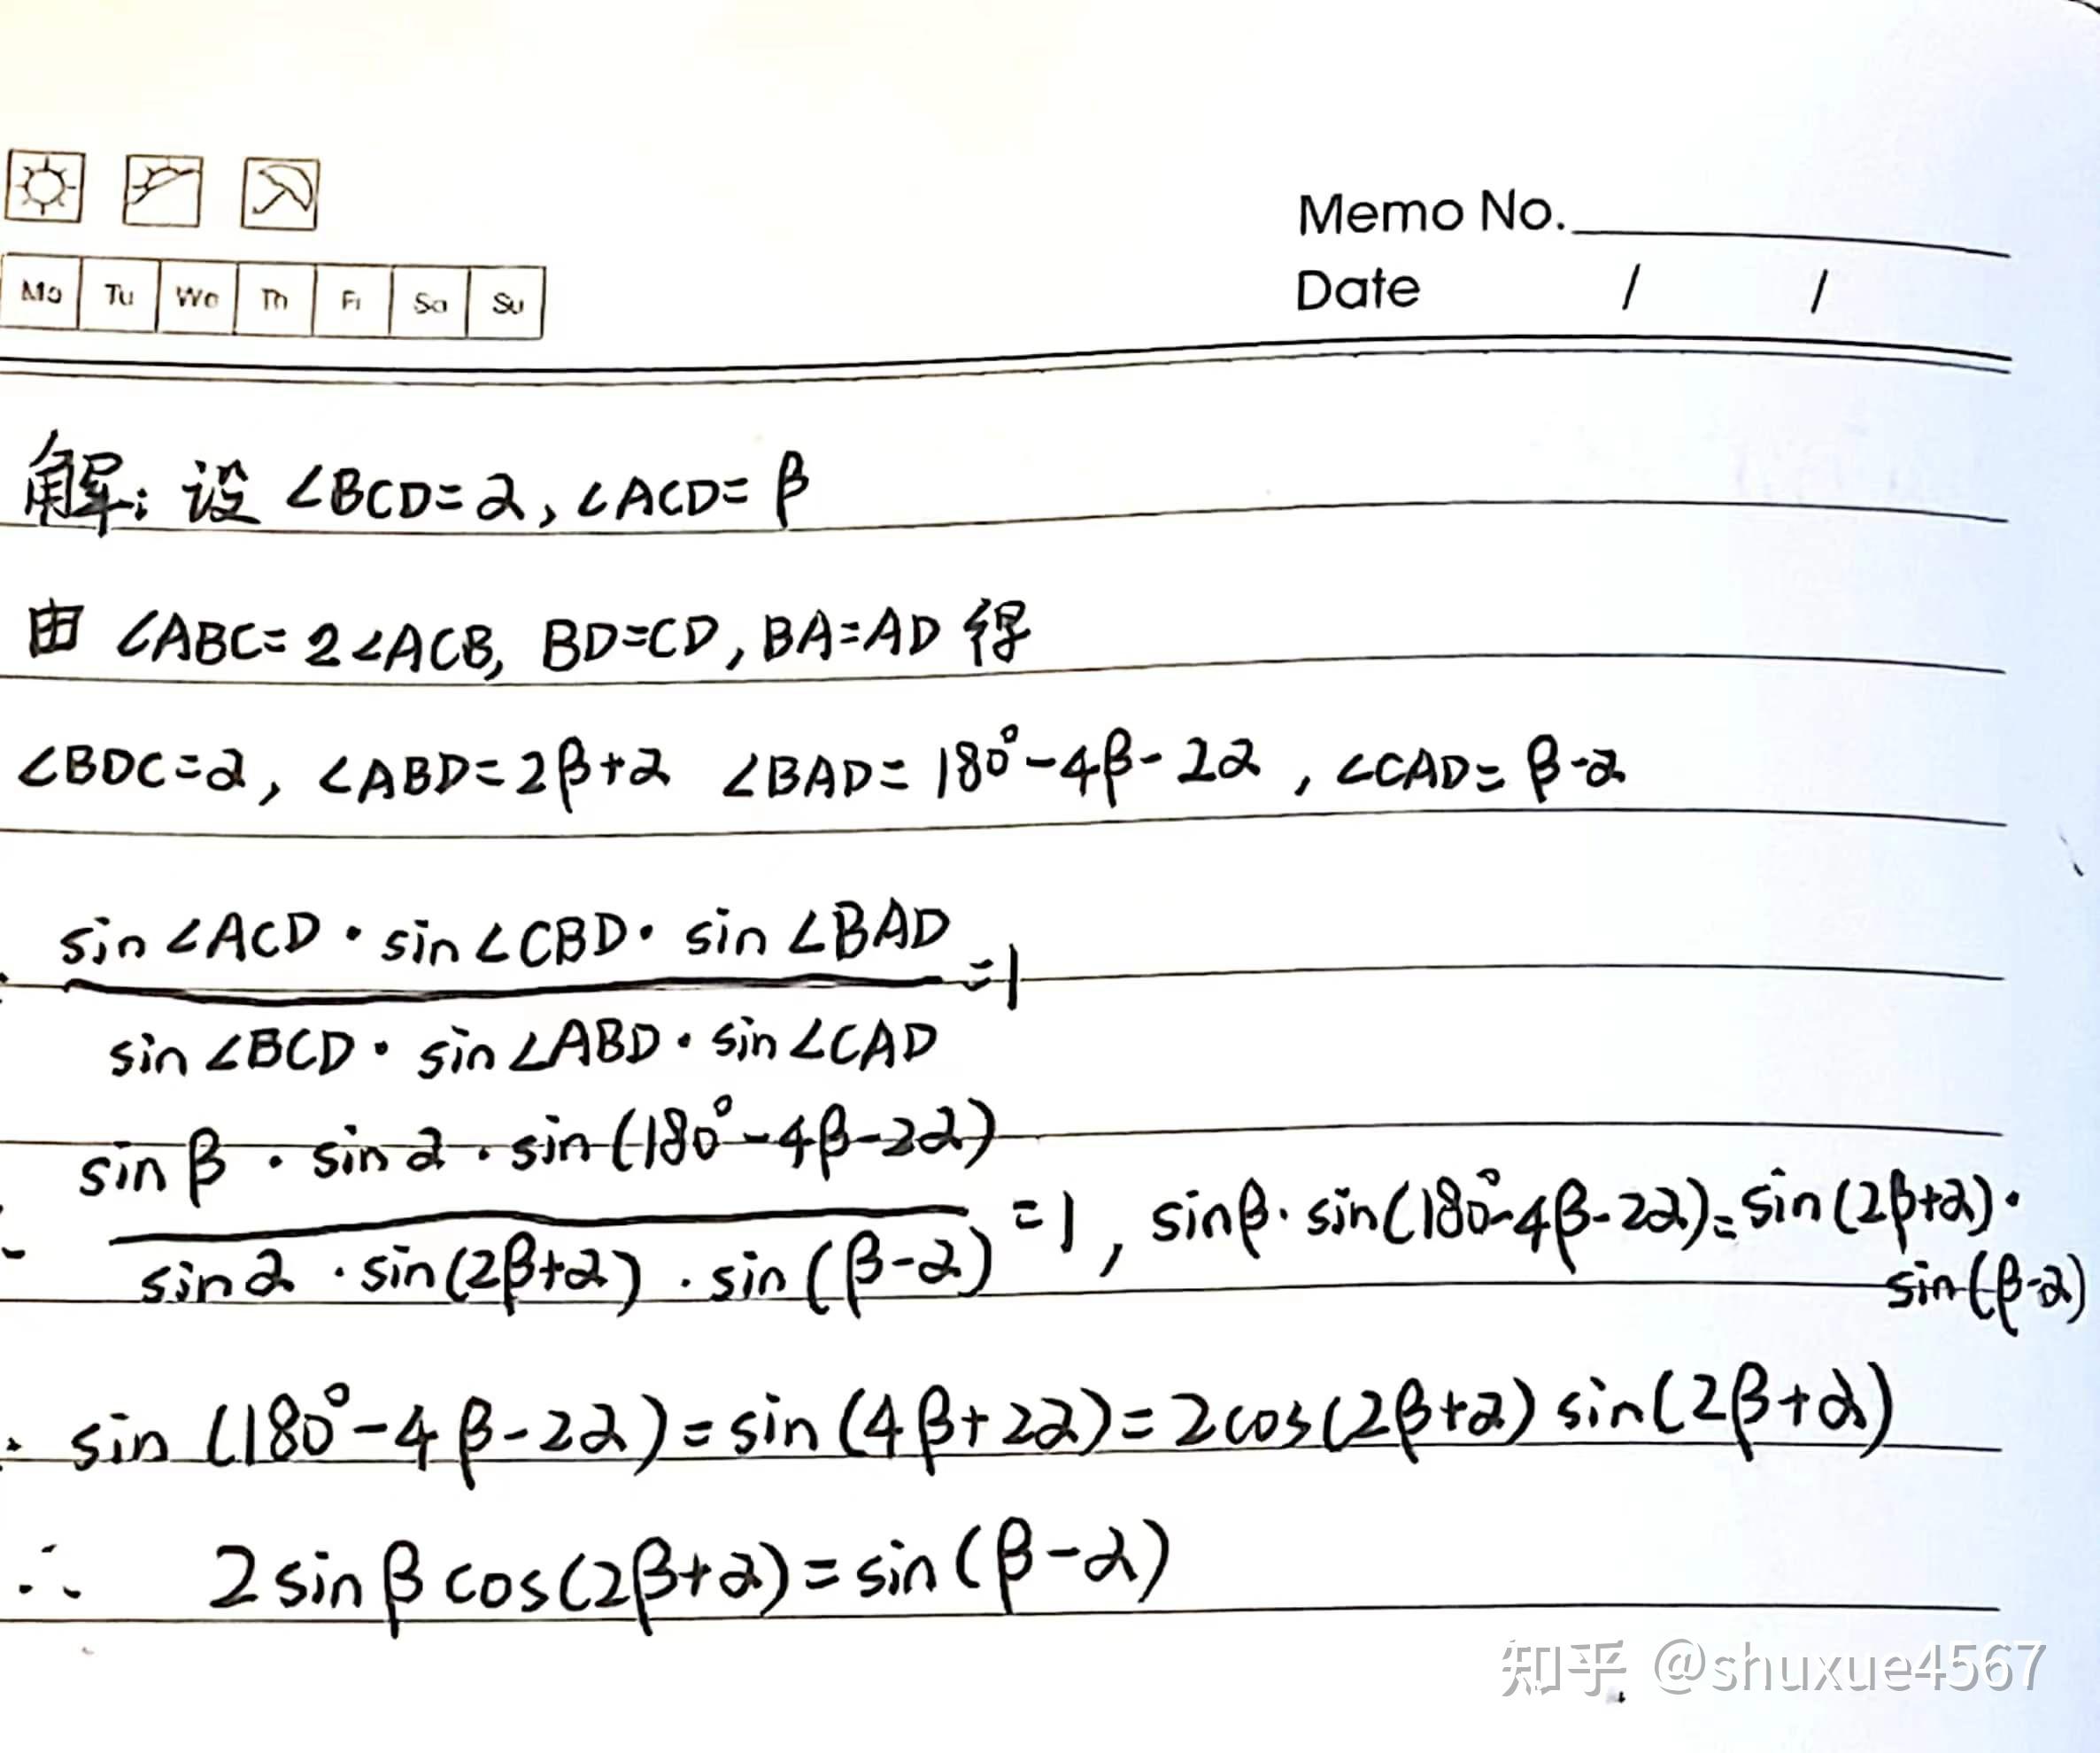 Memo No.
Date / /
Mo Tu We Th Fi Sa Su
解: 设 ∠BCD=α, ∠ACD=β
由 ∠ABC=2∠ACB, BD=CD, BA=AD 得
∠BDC=α, ∠ABD=2β+α ∠BAD=180°-4β-2α, ∠CAD=β-α
sin∠ACD·sin∠CBD·sin∠BAD
=1
sin∠BCD·sin∠ABD·sin∠CAD
sinβ·sinα·sin(180°-4β-2α)
=1, sinβ·sin(180°-4β-2α)=sin(2β+α)·
sinα·sin(2β+α)·sin(β-α)
sin(β-α)
sin(180°-4β-2α)=sin(4β+2α)=2cos(2β+α)sin(2β+α)
∴ 2sinβcos(2β+α)=sin(β-α)
知乎 @shuxue4567